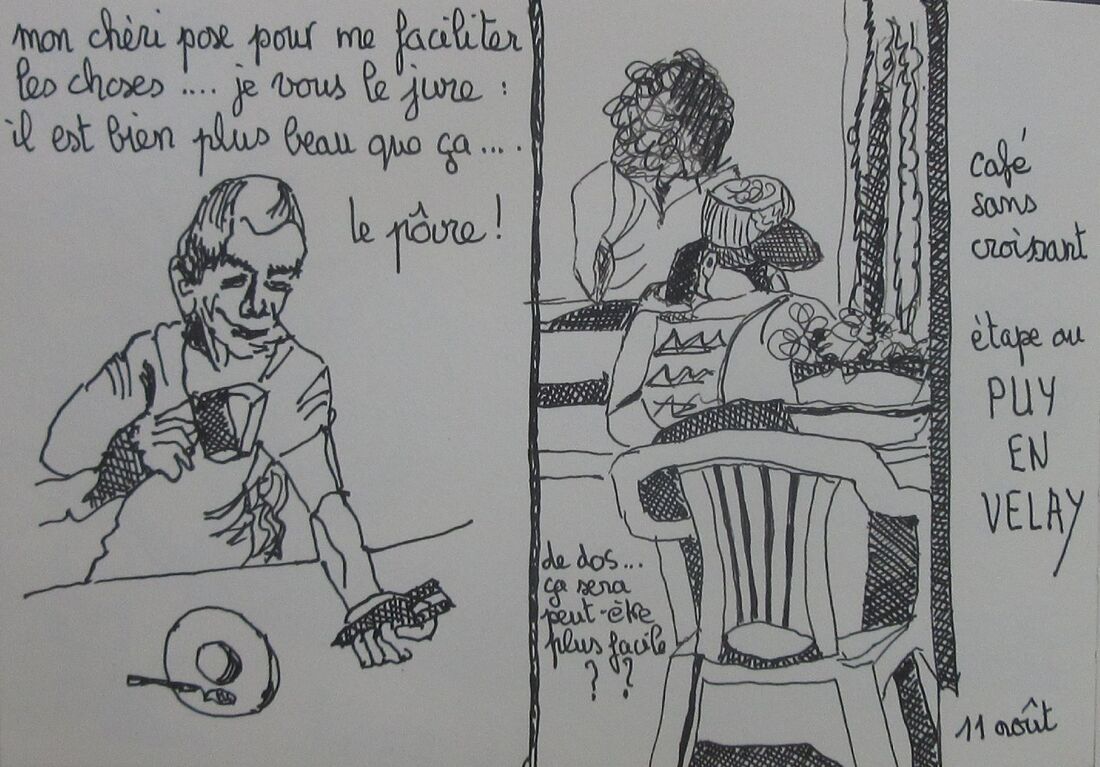 mon chéri pose pour me faciliter
les choses .... je vous le jure :
il est bien plus beau que ça ....
le pôvre !
de dos...
ça sera
peut-être
plus facile
? ?
café
sans
croissant
étape au
PUY
EN
VELAY
11 août